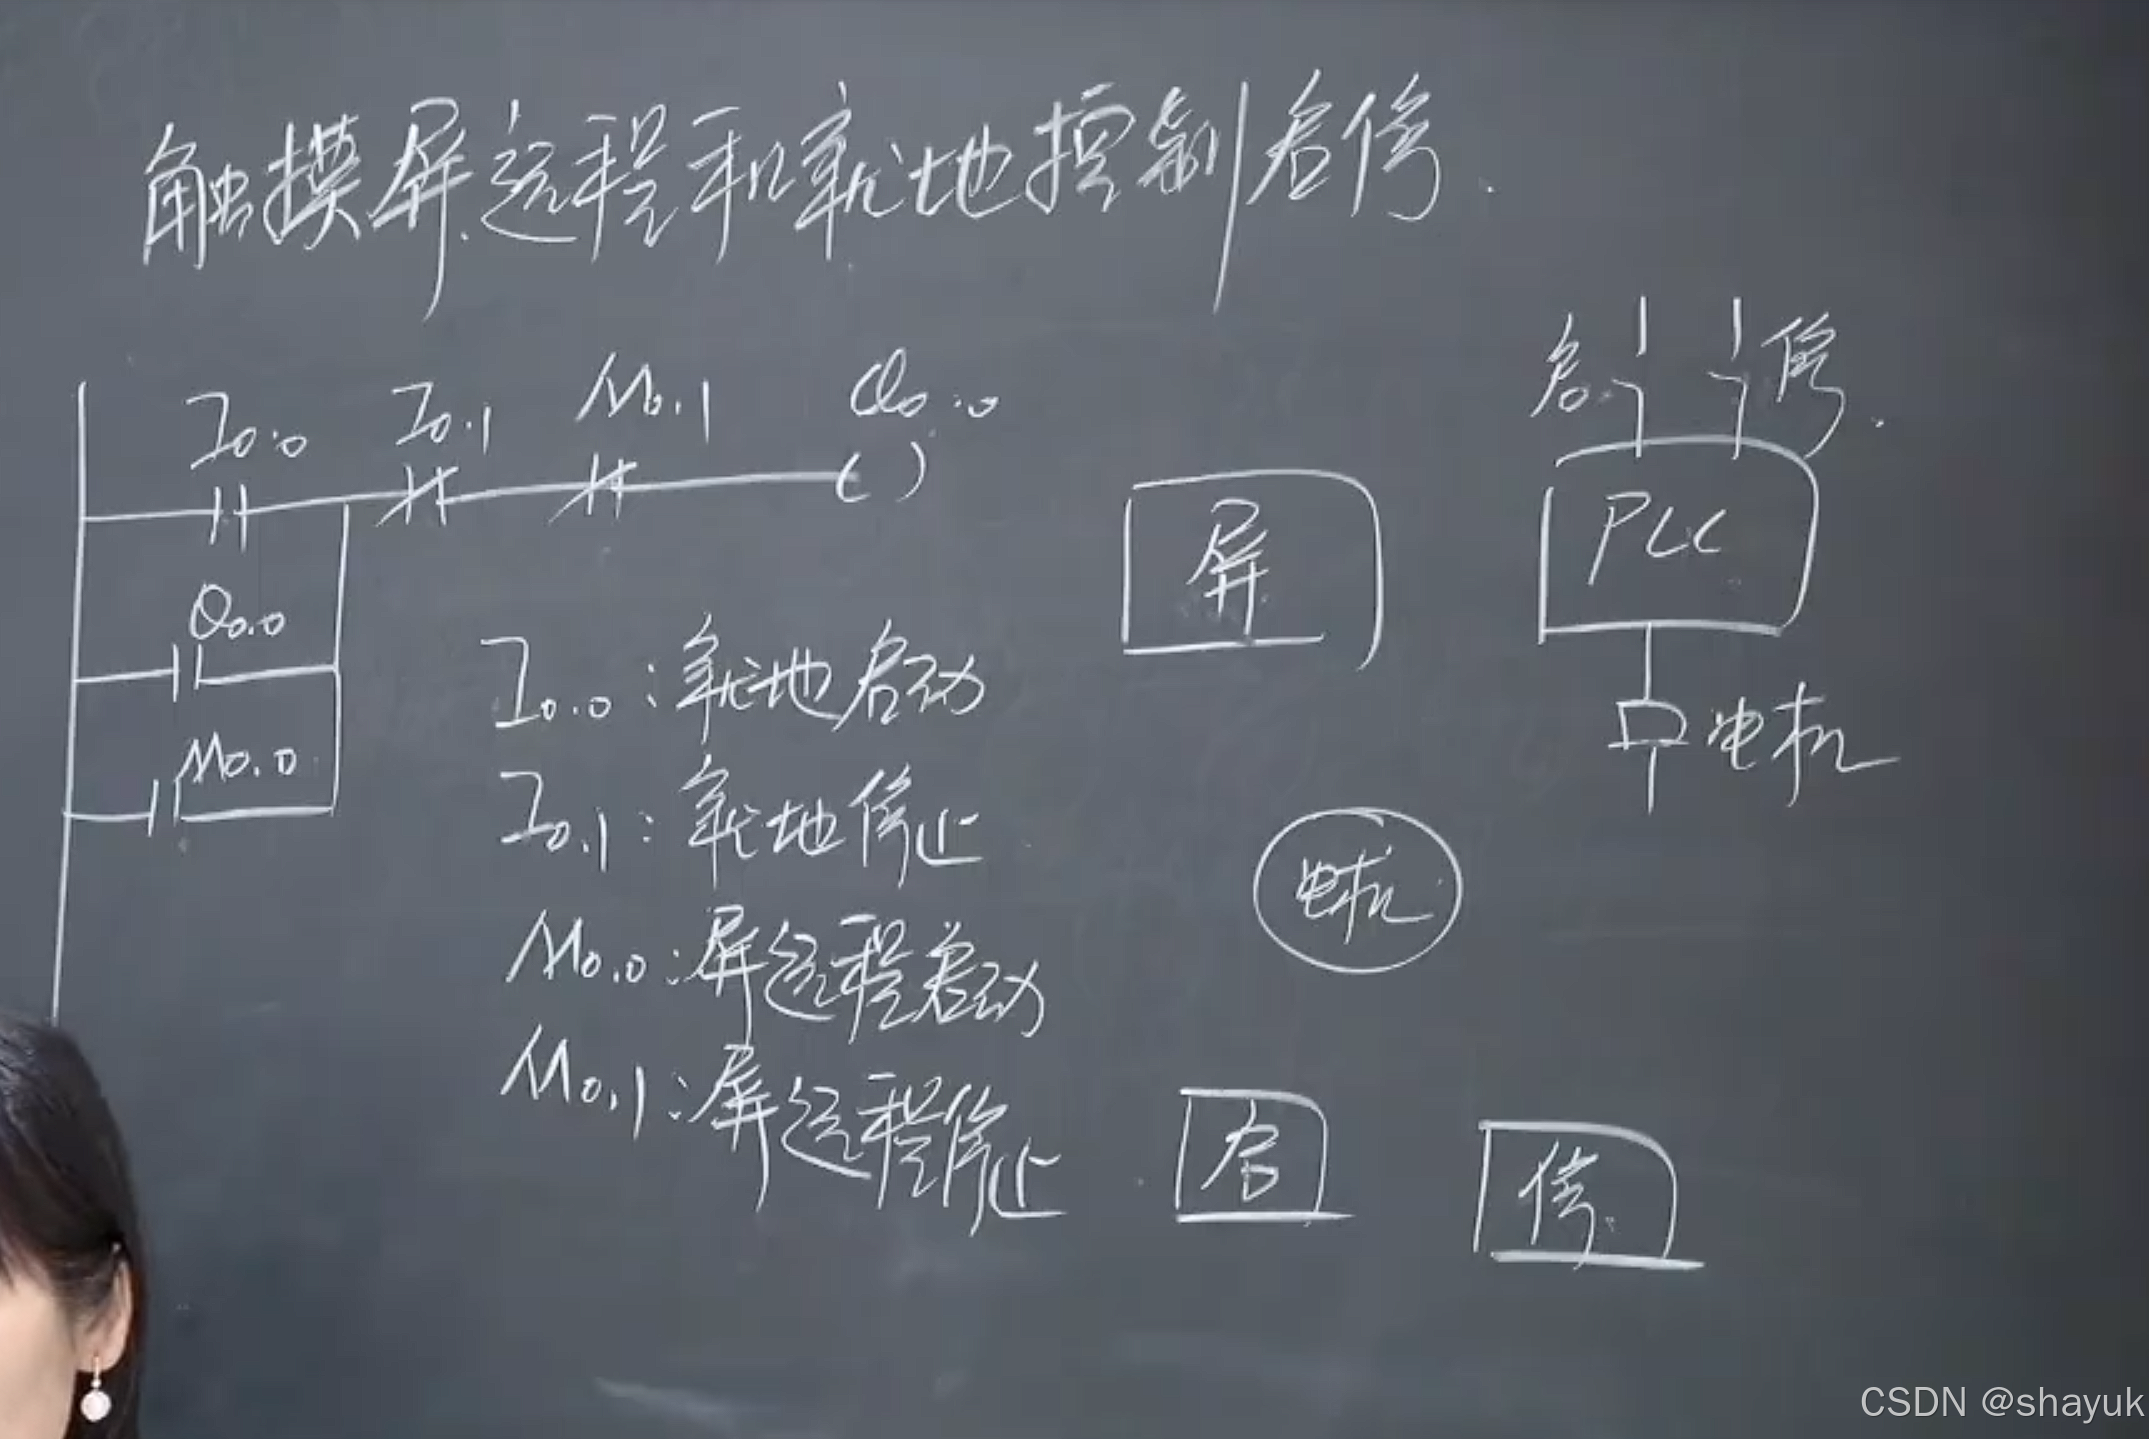 触摸屏远程和就地控制启停.
I0.0 I0.1 M0.1 Q0.0
Q0.0
M0.0
I0.0:就地启动
I0.1:就地停止
M0.0:屏远程启动
M0.1:屏远程停止
屏
启 停.
PLC
电机
电机
启
停
CSDN @shayuk